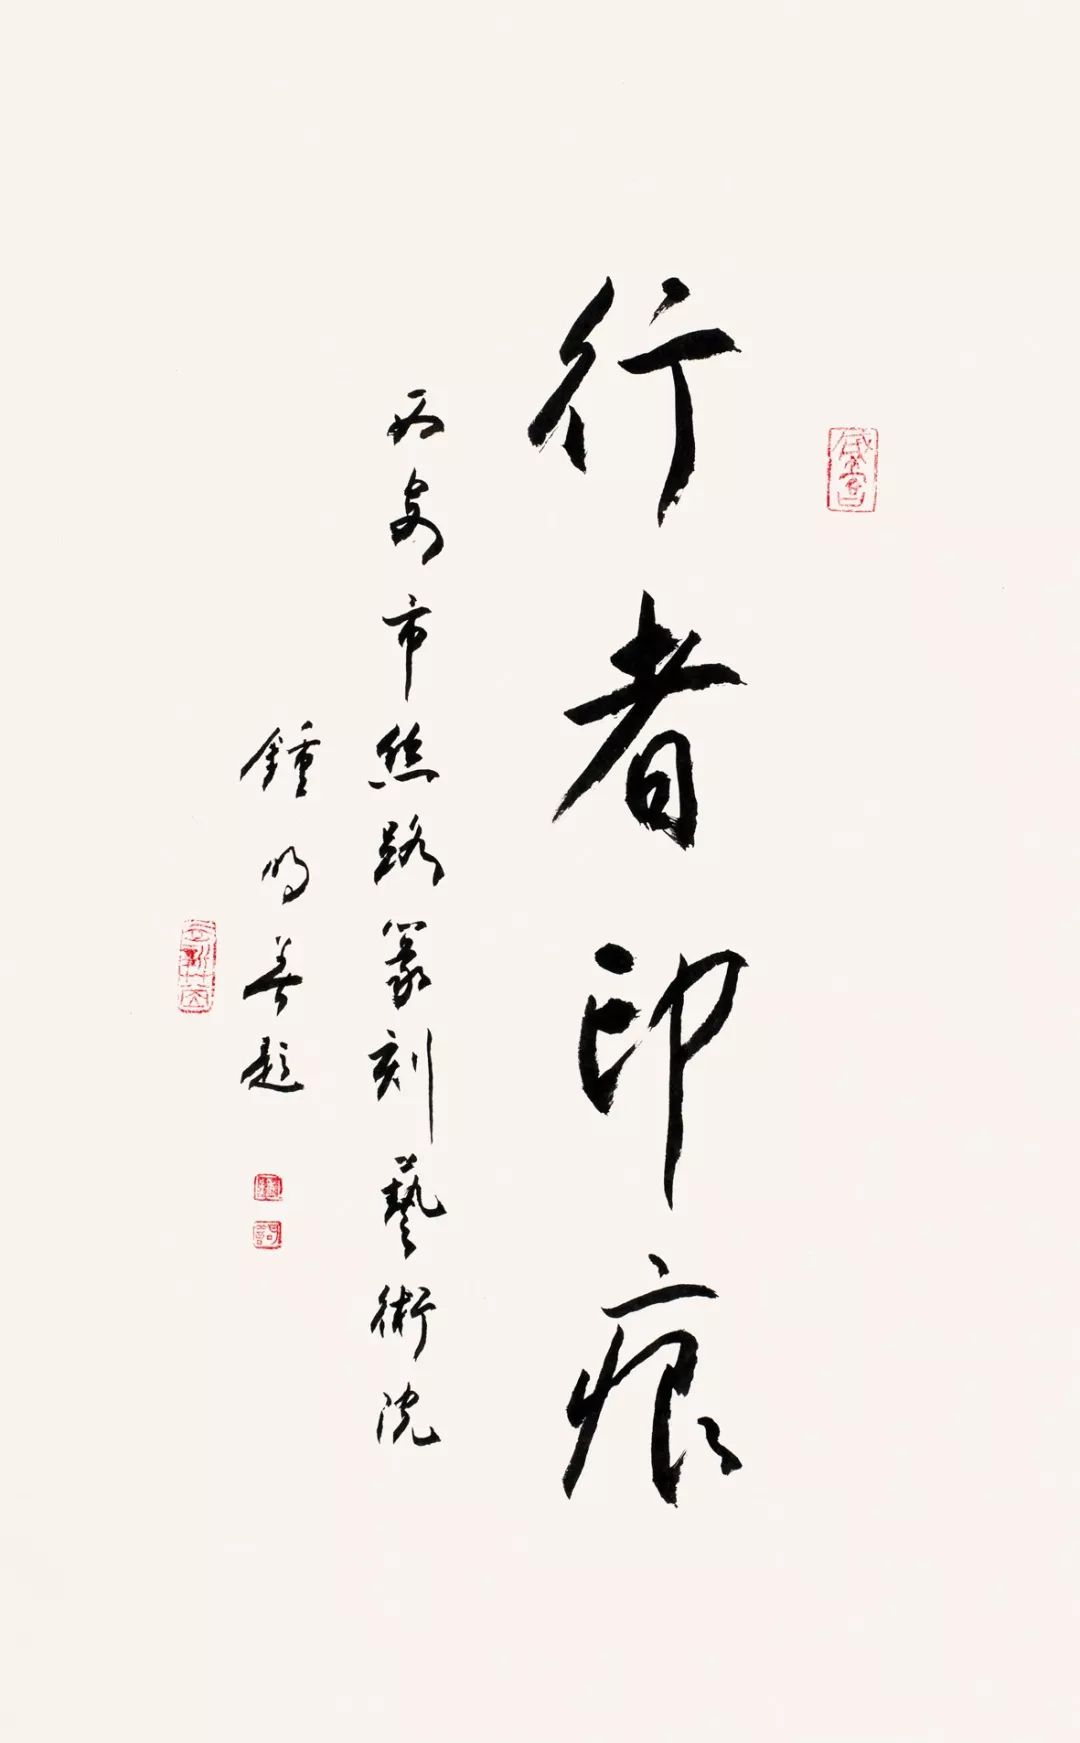 行者印痕
西安市丝路篆刻藝術院
鍾明善題